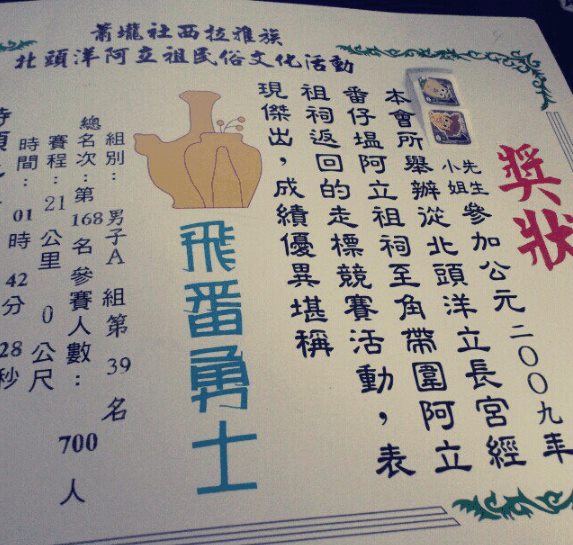 蕭壠社西拉雅族
北頭洋阿立祖民俗文化活動
獎狀
先生
小姐
參加公元二００九年
本會所舉辦從北頭洋立長宮經
番仔塭阿立祖祠至角帶圍阿立
祖祠返回的走標競賽活動，表
現傑出，成績優異堪稱
飛番勇士
組別：男子A 組第 39 名
總名次：第 168 名 參賽人數：700 人
賽程：21 公里 0 公尺
時間：01 時 42 分 28 秒